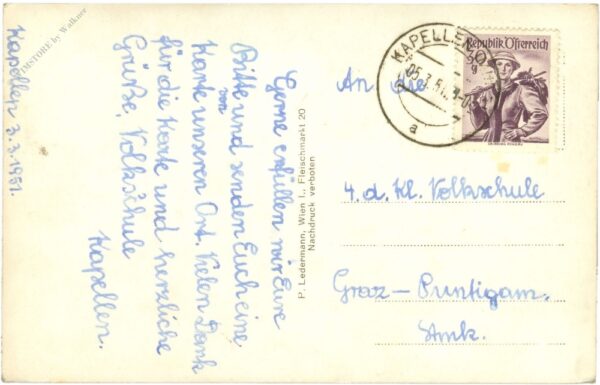 Kapellen 3.3.1951.
Gerne erfüllen wir Eure
Bitte und senden Euch eine
von
Karte unseren Ort. Vielen Dank
für die Karte und herzliche
Grüße, Volksschule
Kapellen.
P. Ledermann, Wien I., Fleischmarkt 20
Nachdruck verboten
KAPELLEN
05.3.51
a
Republik Österreich
An die
4. d. Kl. Volksschule
Graz – Puntigam.
Stmk.
STORE by Walkner